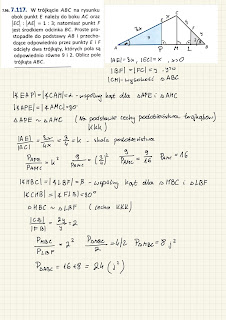 7.117. W trójkącie ABC na rysunku
obok punkt E należy do boku AC oraz
|EC| : |AE| = 1 : 3, natomiast punkt F
jest środkiem odcinka BC. Proste pro-
stopadłe do podstawy AB i przecho-
dzące odpowiednio przez punkty E i F
odcięły dwa trójkąty, których pola są
odpowiednio równe 9 i 2. Oblicz pole
trójkąta ABC.
A P M L
|AE| = 3x, |EC| = x, x>0
|BF| = |FC| = y, y>0
|CM| - wysokość △ABC
|∢EAP| = |∢CAM| = α - wspólny kąt dla △APE i △AMC
|∢APE| = |∢AMC| = 90°
△APE ~ △AMC (Na podstawie cechy podobieństwa trójkątów)
(kkk)
|AE| / |AC| = 3x / 4x = 3/4 = k - skala podobieństwa
P△APE / P△AMC = k² 9 / P△AMC = (3/4)² 9 / P△AMC = 9/16 P△AMC = 16
|∢MBC| = |∢LBF| = β - wspólny kąt dla △MBC i △LBF
|∢CMB| = |∢FLB| = 90°
△MBC ~ △LBF (cecha KKK)
|CB| / |FB| = 2y / y = 2
P△MBC / P△LBF = 2² P△MBC / 2 = 4 /·2 P△MBC = 8 j²
P△ABC = 16+8 = 24 (j²)